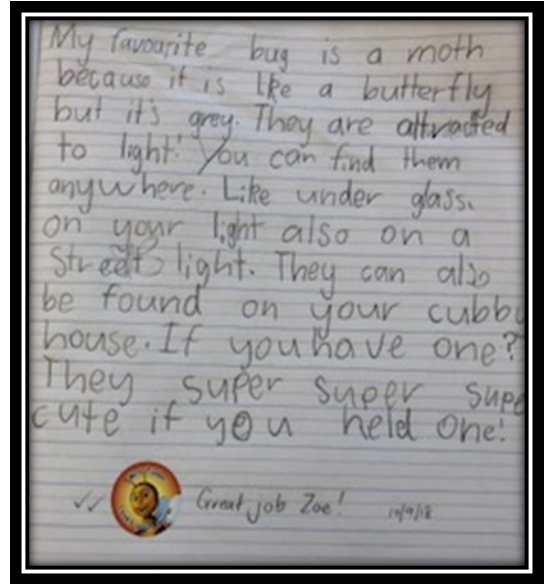 My favourite bug is a moth
because it is like a butterfly
but it's grey. They are attracted
to light! You can find them
anywhere. Like under glass.
on your light also on a
Street light. They can also
be found on your cubby
house. If you have one?
They super super supe
cute if you held one!
Great job Zoe!